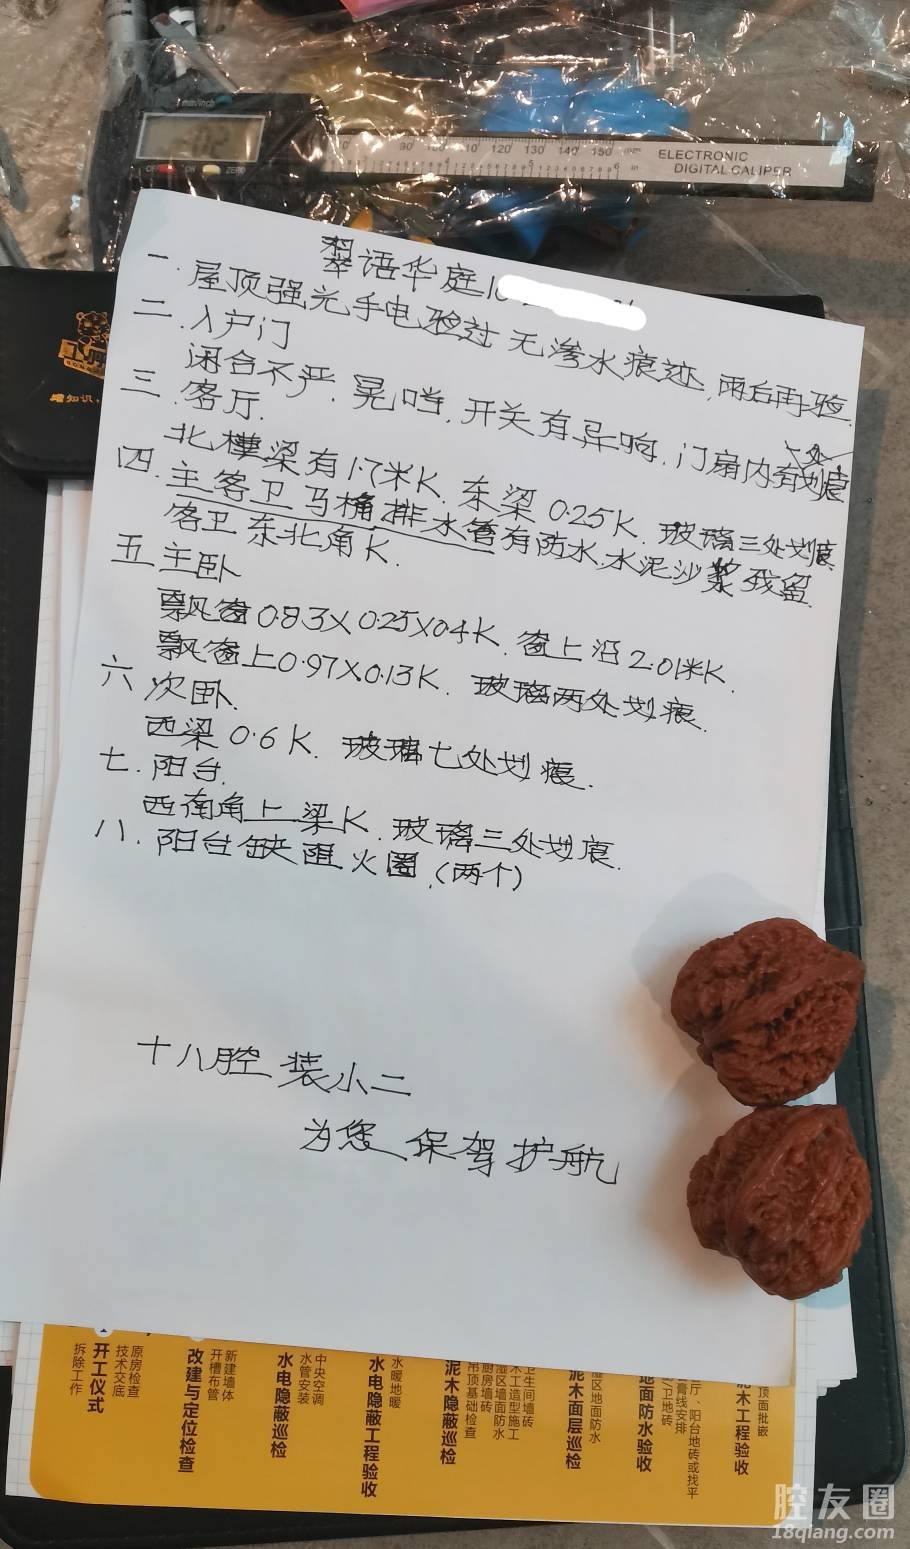 mm/inch
OFF ON ZERO
90 100 110 120 130 140 150 mm
ELECTRONIC
DIGITAL CALIPER
翠语华庭10
一.屋顶强光手电验过 无渗水痕迹,雨后再验.
二.入户门
闭合不严.晃哐.开关有异响.门扇内有一处划痕
三.客厅.
北横梁有1.7米K.东梁0.25K.玻璃三处划痕
四.主客卫马桶排水管有防水.水泥沙浆残留.
客卫东北角K.
五主卧
飘窗0.83X0.25X0.4K.窗上沿2.01米K.
飘窗上0.97X0.13K.玻璃两处划痕.
六次卧.
西梁0.6K.玻璃七处划痕.
七.阳台.
西南角上梁K.玻璃三处划痕.
八.阳台缺阻火圈.(两个)
十八腔 装小二
为您 保驾护航
开工仪式
原房检查
技术交底
拆除工作
改建与定位检查
新建墙体
开槽布管
水电隐蔽巡检
中央空调
水管安装
水电隐蔽工程验收
水暖地暖
泥木隐蔽巡检
卫生间墙砖
木工造型施工
湿区墙面防水
厨房墙砖
吊顶基础检查
泥木面层巡检
湿区地面防水
地面防水验收
厅、阳台地砖或找平
石膏线安排
木工程验收
顶面批嵌
腔友圈
18qiang.com